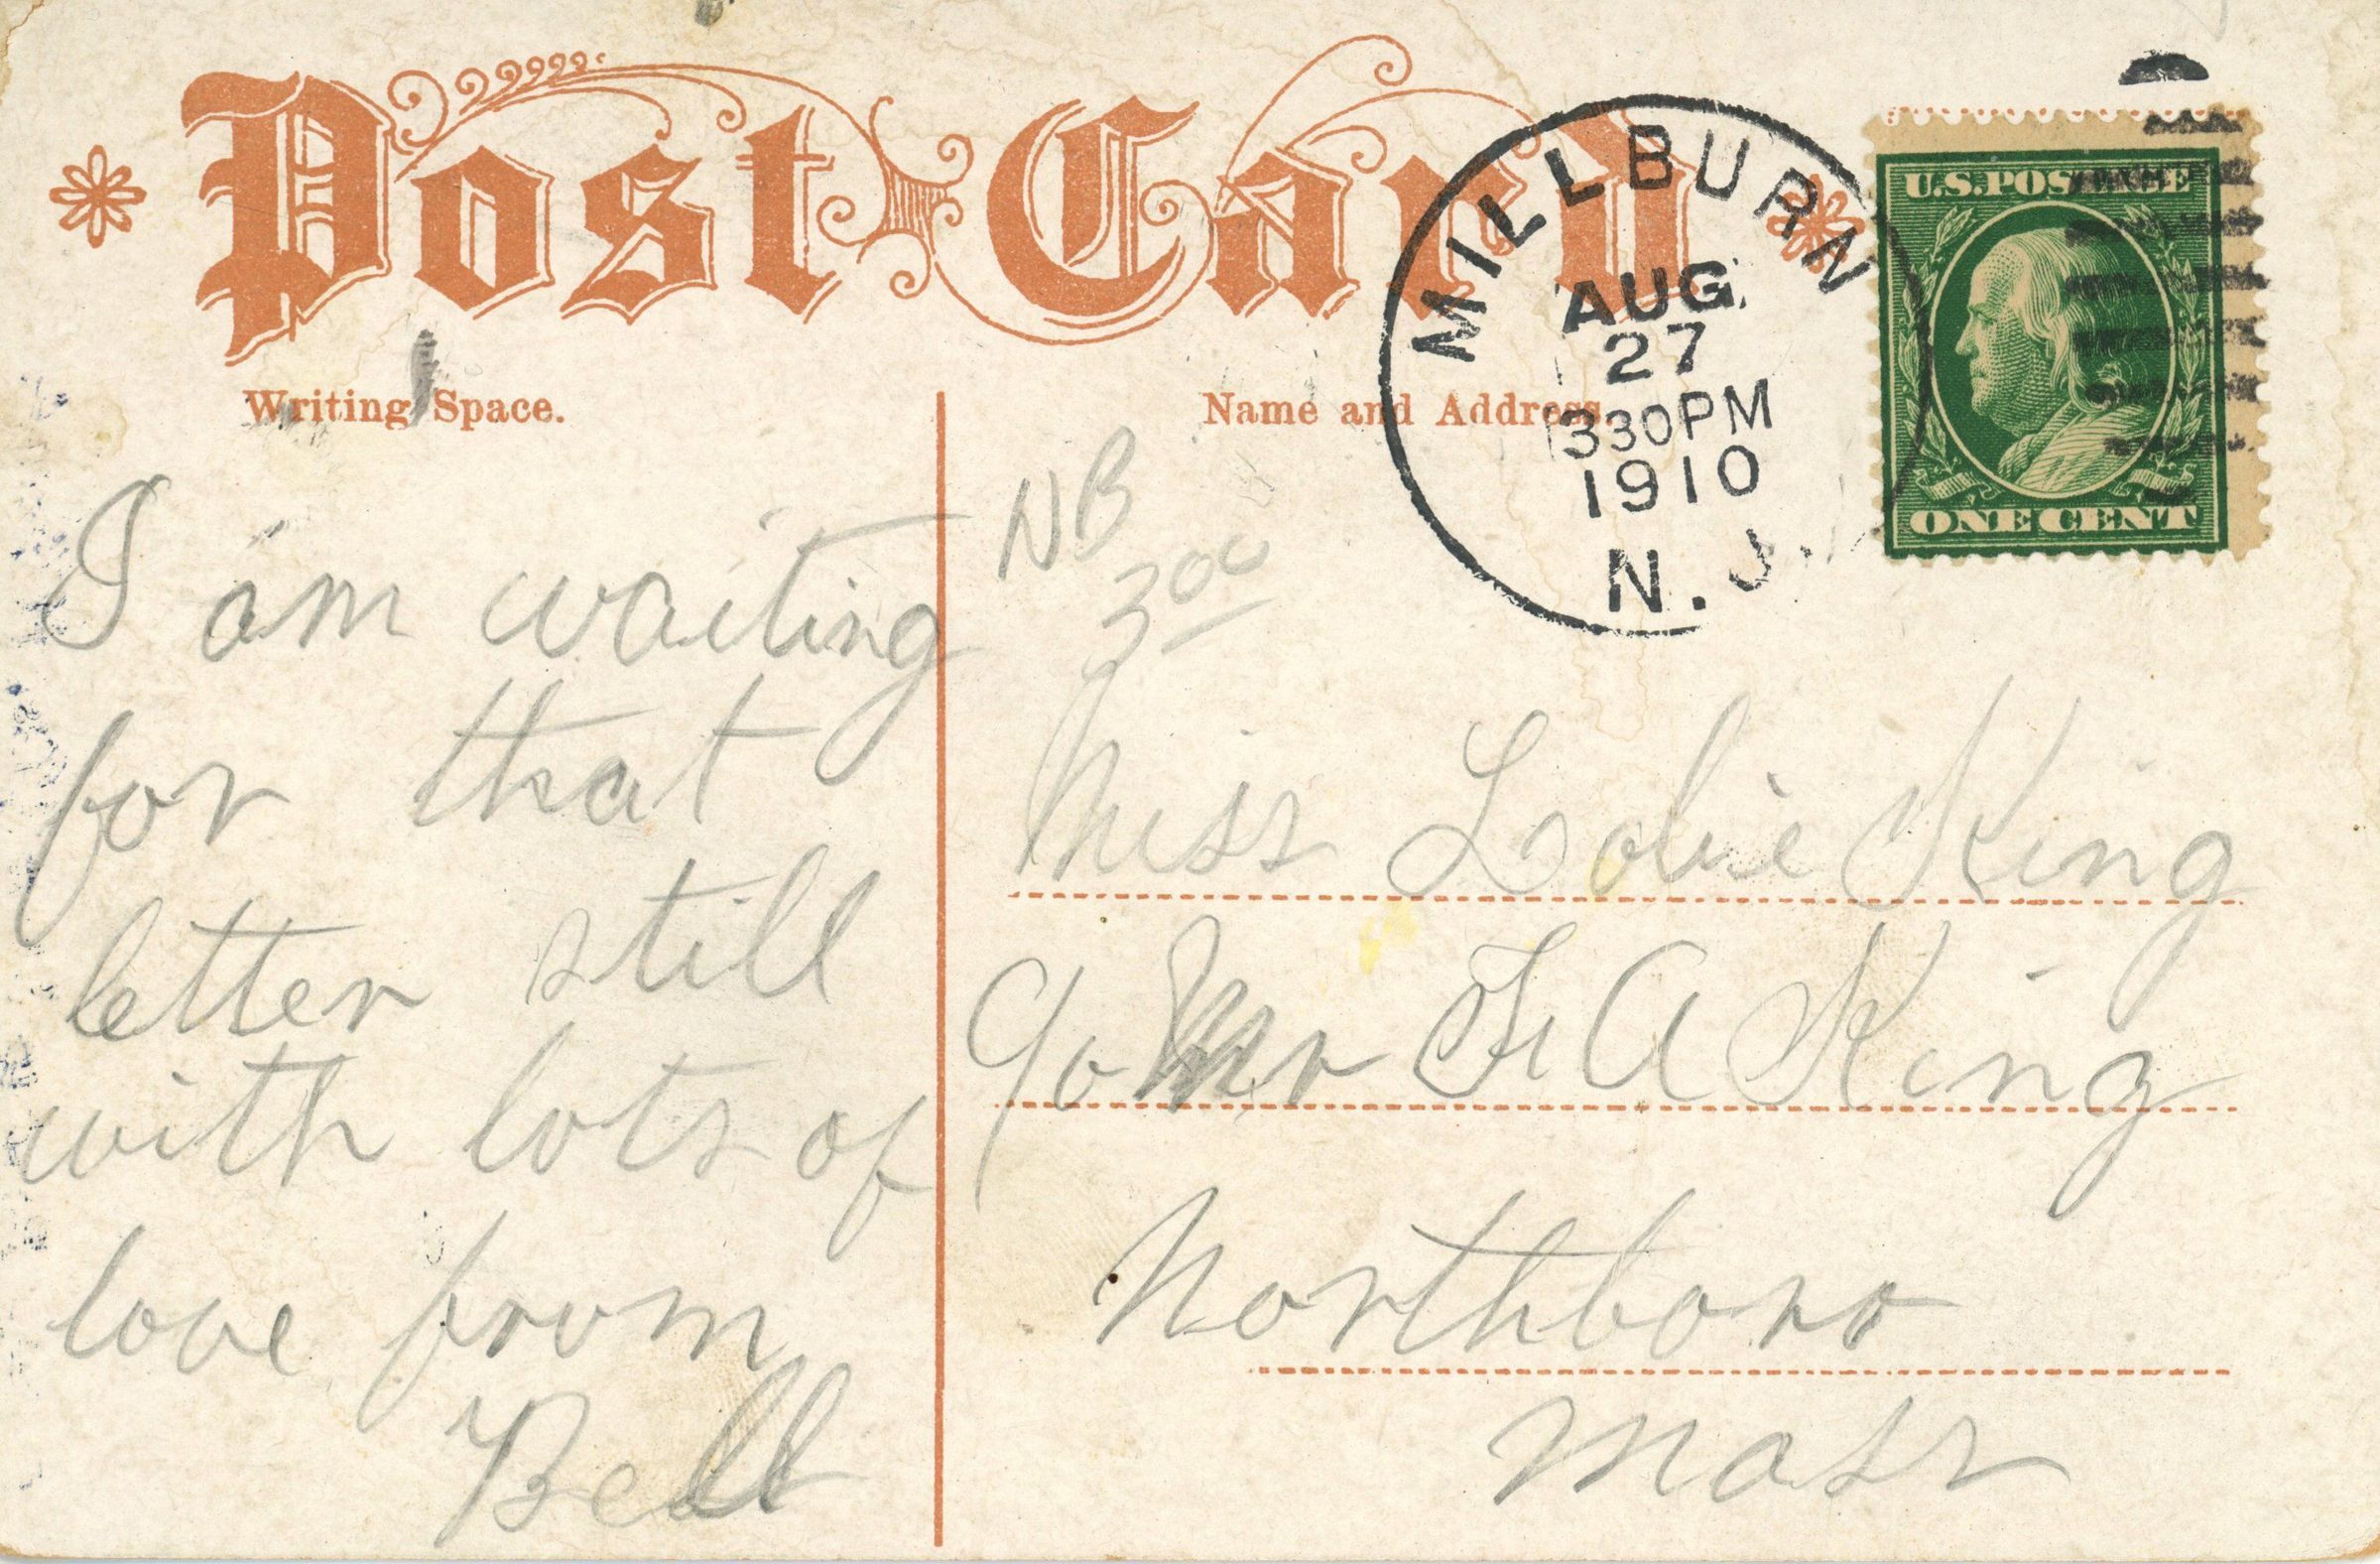 Post Card
Writing Space.
Name and Address.
MILLBURN
AUG
27
330PM
1910
N.J.
U.S.POSTAGE
ONE CENT
I am waiting
for that
letter still
with lots of
love from
Bell
NB
3 00
Miss King
c/o Mr A King
Northboro
Mass